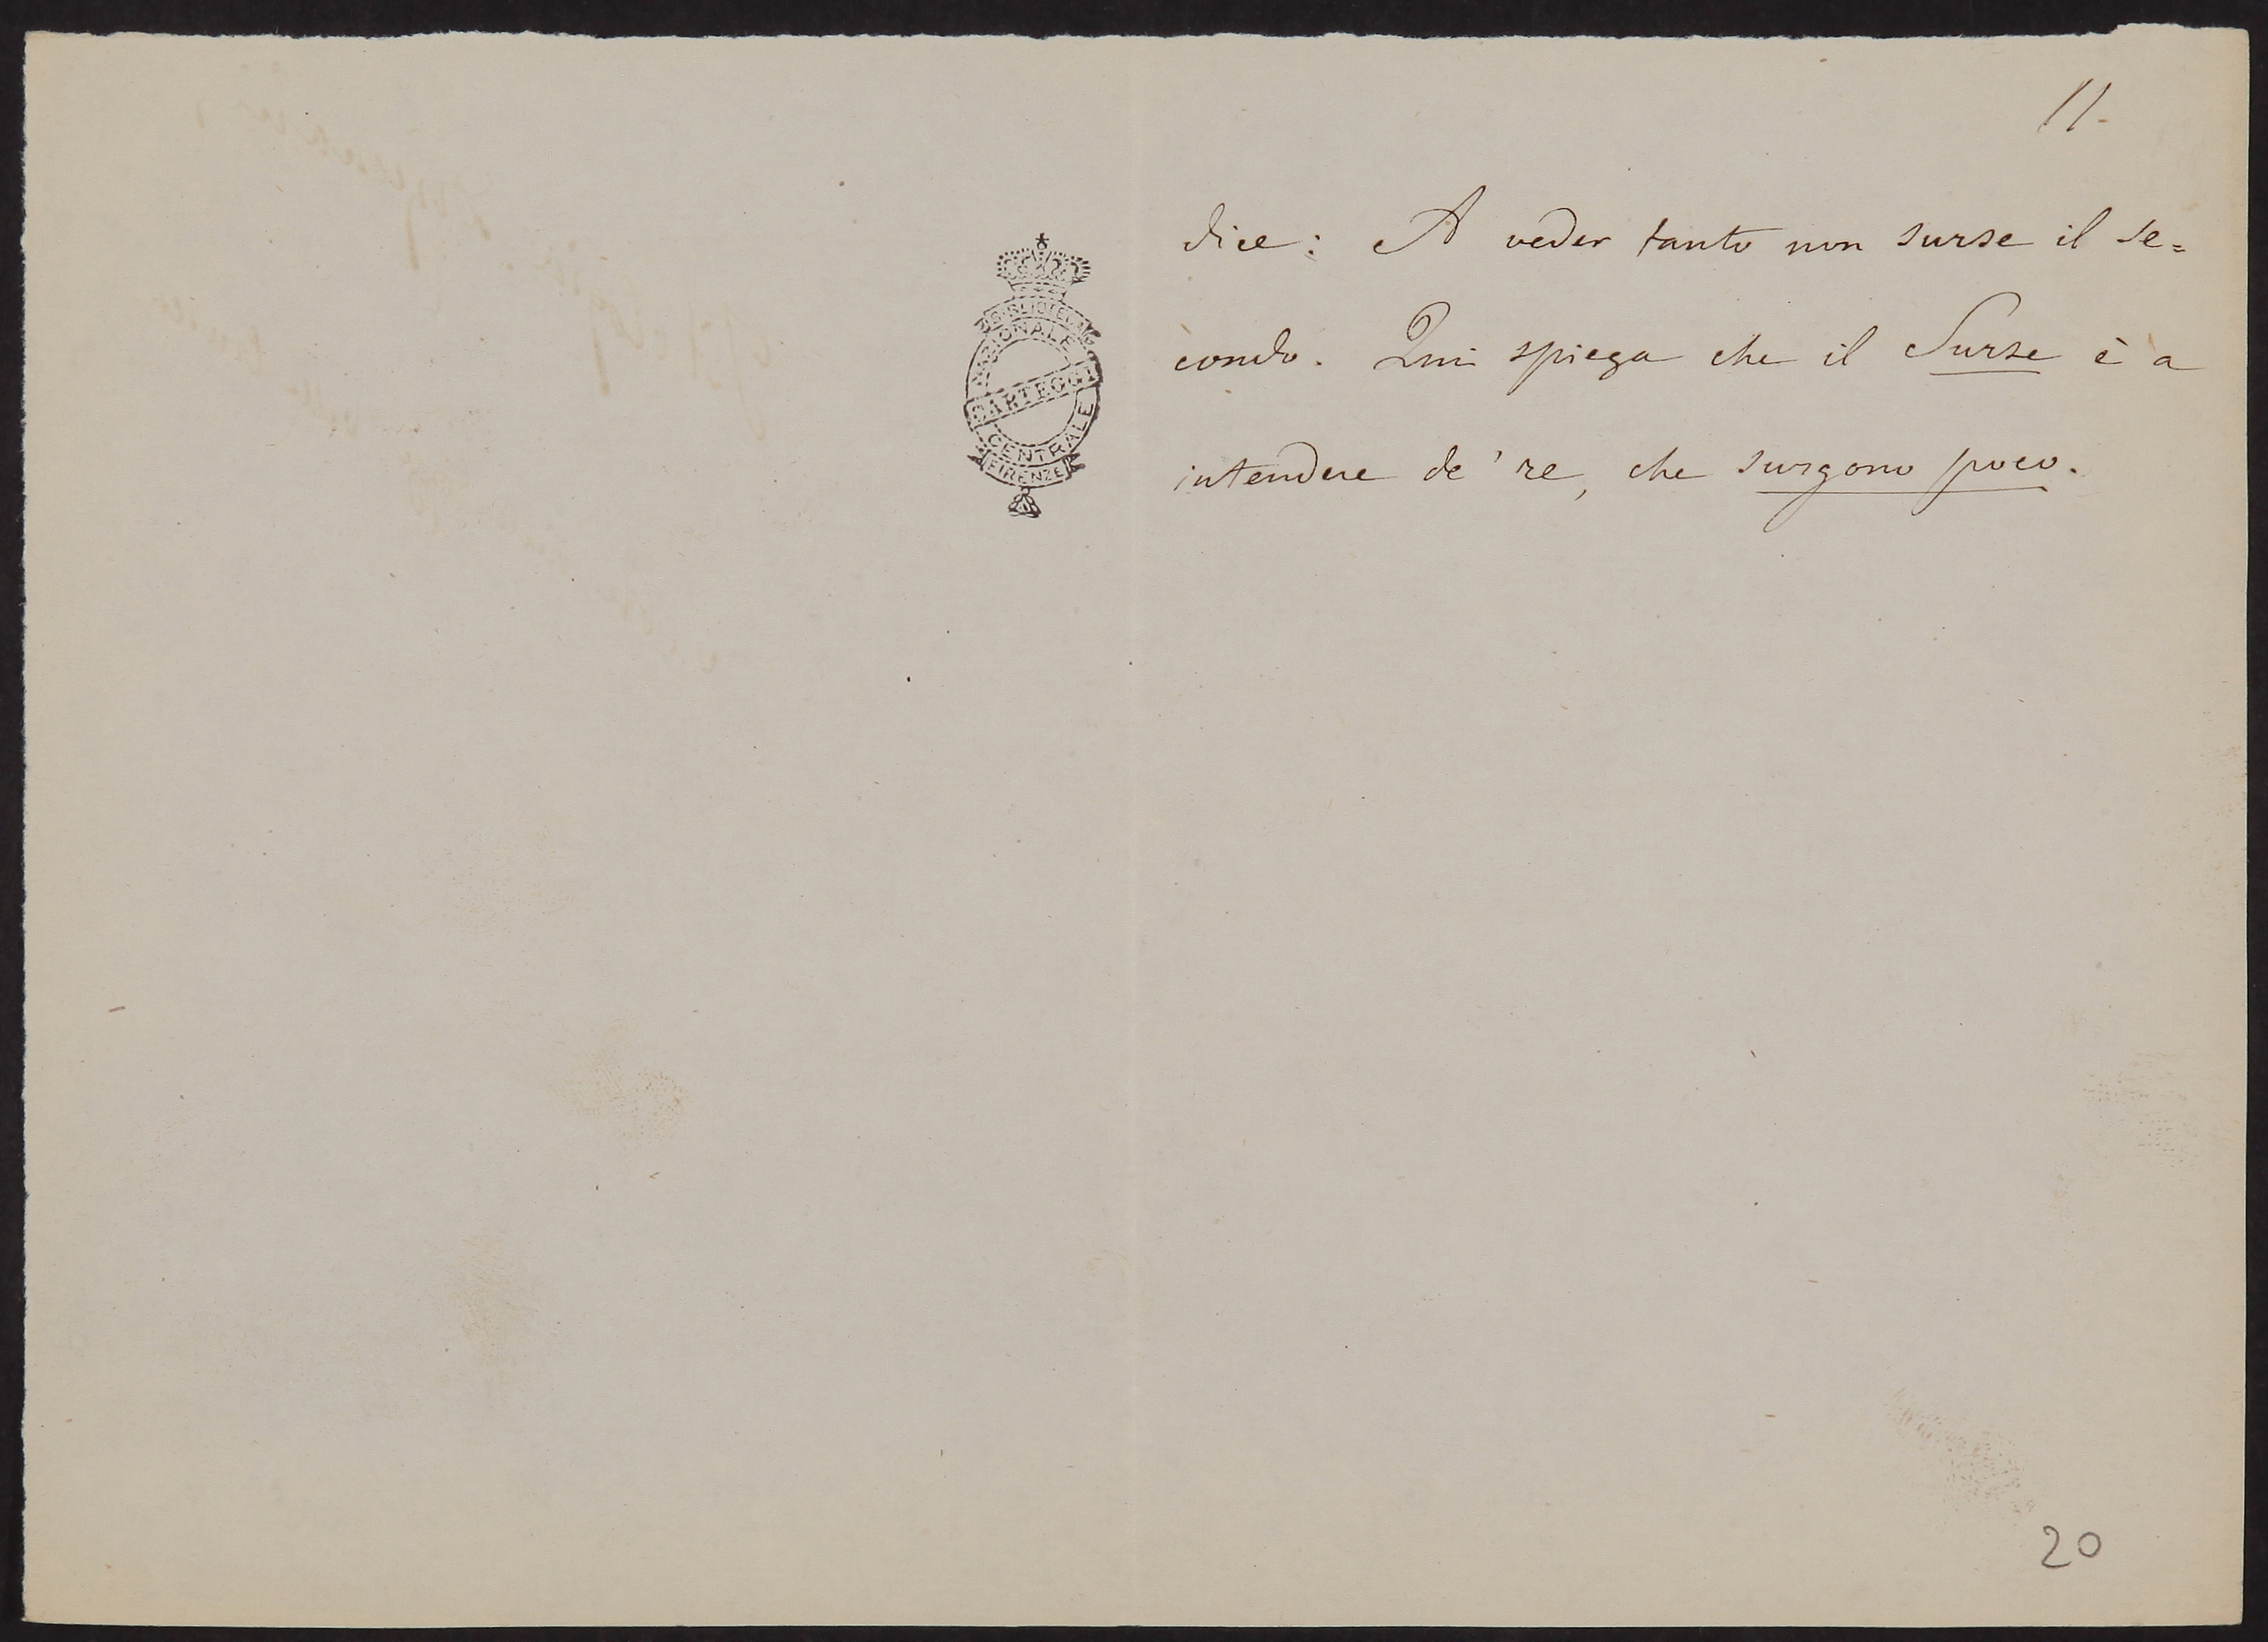 11.
dice: A veder tanto non surse il se=
condo. Qui spiega che il Surse è a
intendere de' re, che surgono poco.
BIBLIOTECA
NAZIONALE
CARTEGGI
CENTRALE
FIRENZE
20